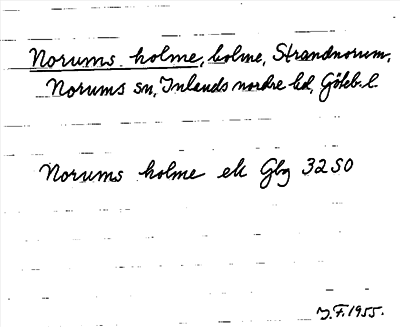 Norums holme, holme, Strandnorum,
Norums sn, Inlands nordre hd, Göteb. l.
Norums holme ek Gbg 32 SO
J.F. 1955.